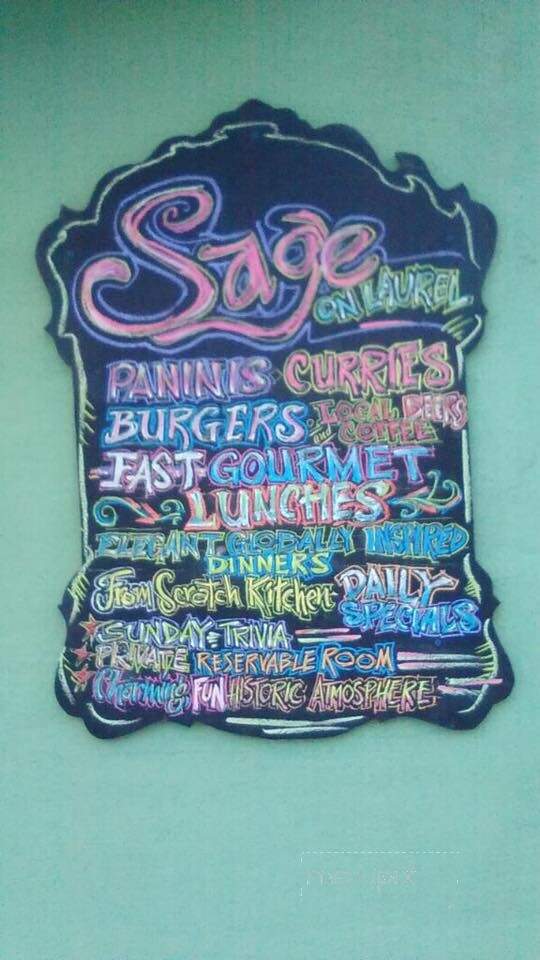 Sage
ON LAUREL
PANINIS CURRIES
BURGERS LOCAL BEERS
and COFFEE
FAST GOURMET
LUNCHES
ELEGANT GLOBALLY INSPIRED
DINNERS
From Scratch Kitchen DAILY
SPECIALS
SUNDAY TRIVIA
PRIVATE RESERVABLE ROOM
Charming FUN HISTORIC ATMOSPHERE